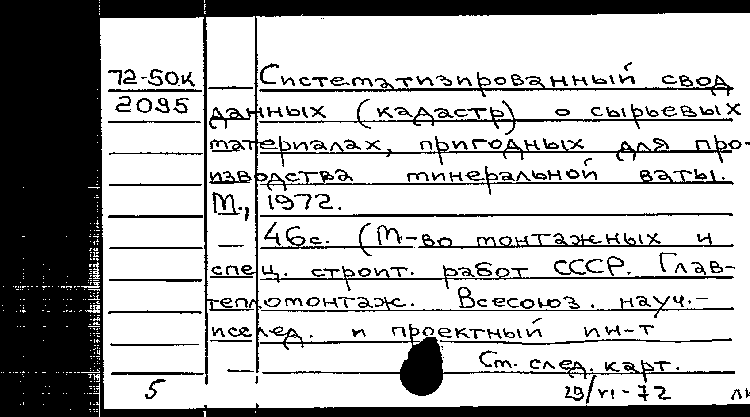 72-50к
2095
Систематизированный свод
данных (кадастр) о сырьевых
материалах, пригодных для про-
изводства минеральной ваты.
М., 1972.
46с. (М-во монтажных и
спец. строит. работ СССР. Глав-
тепломонтаж. Всесоюз. науч.-
исслед. и проектный ин-т
См. след. карт.
5
29/VI-72